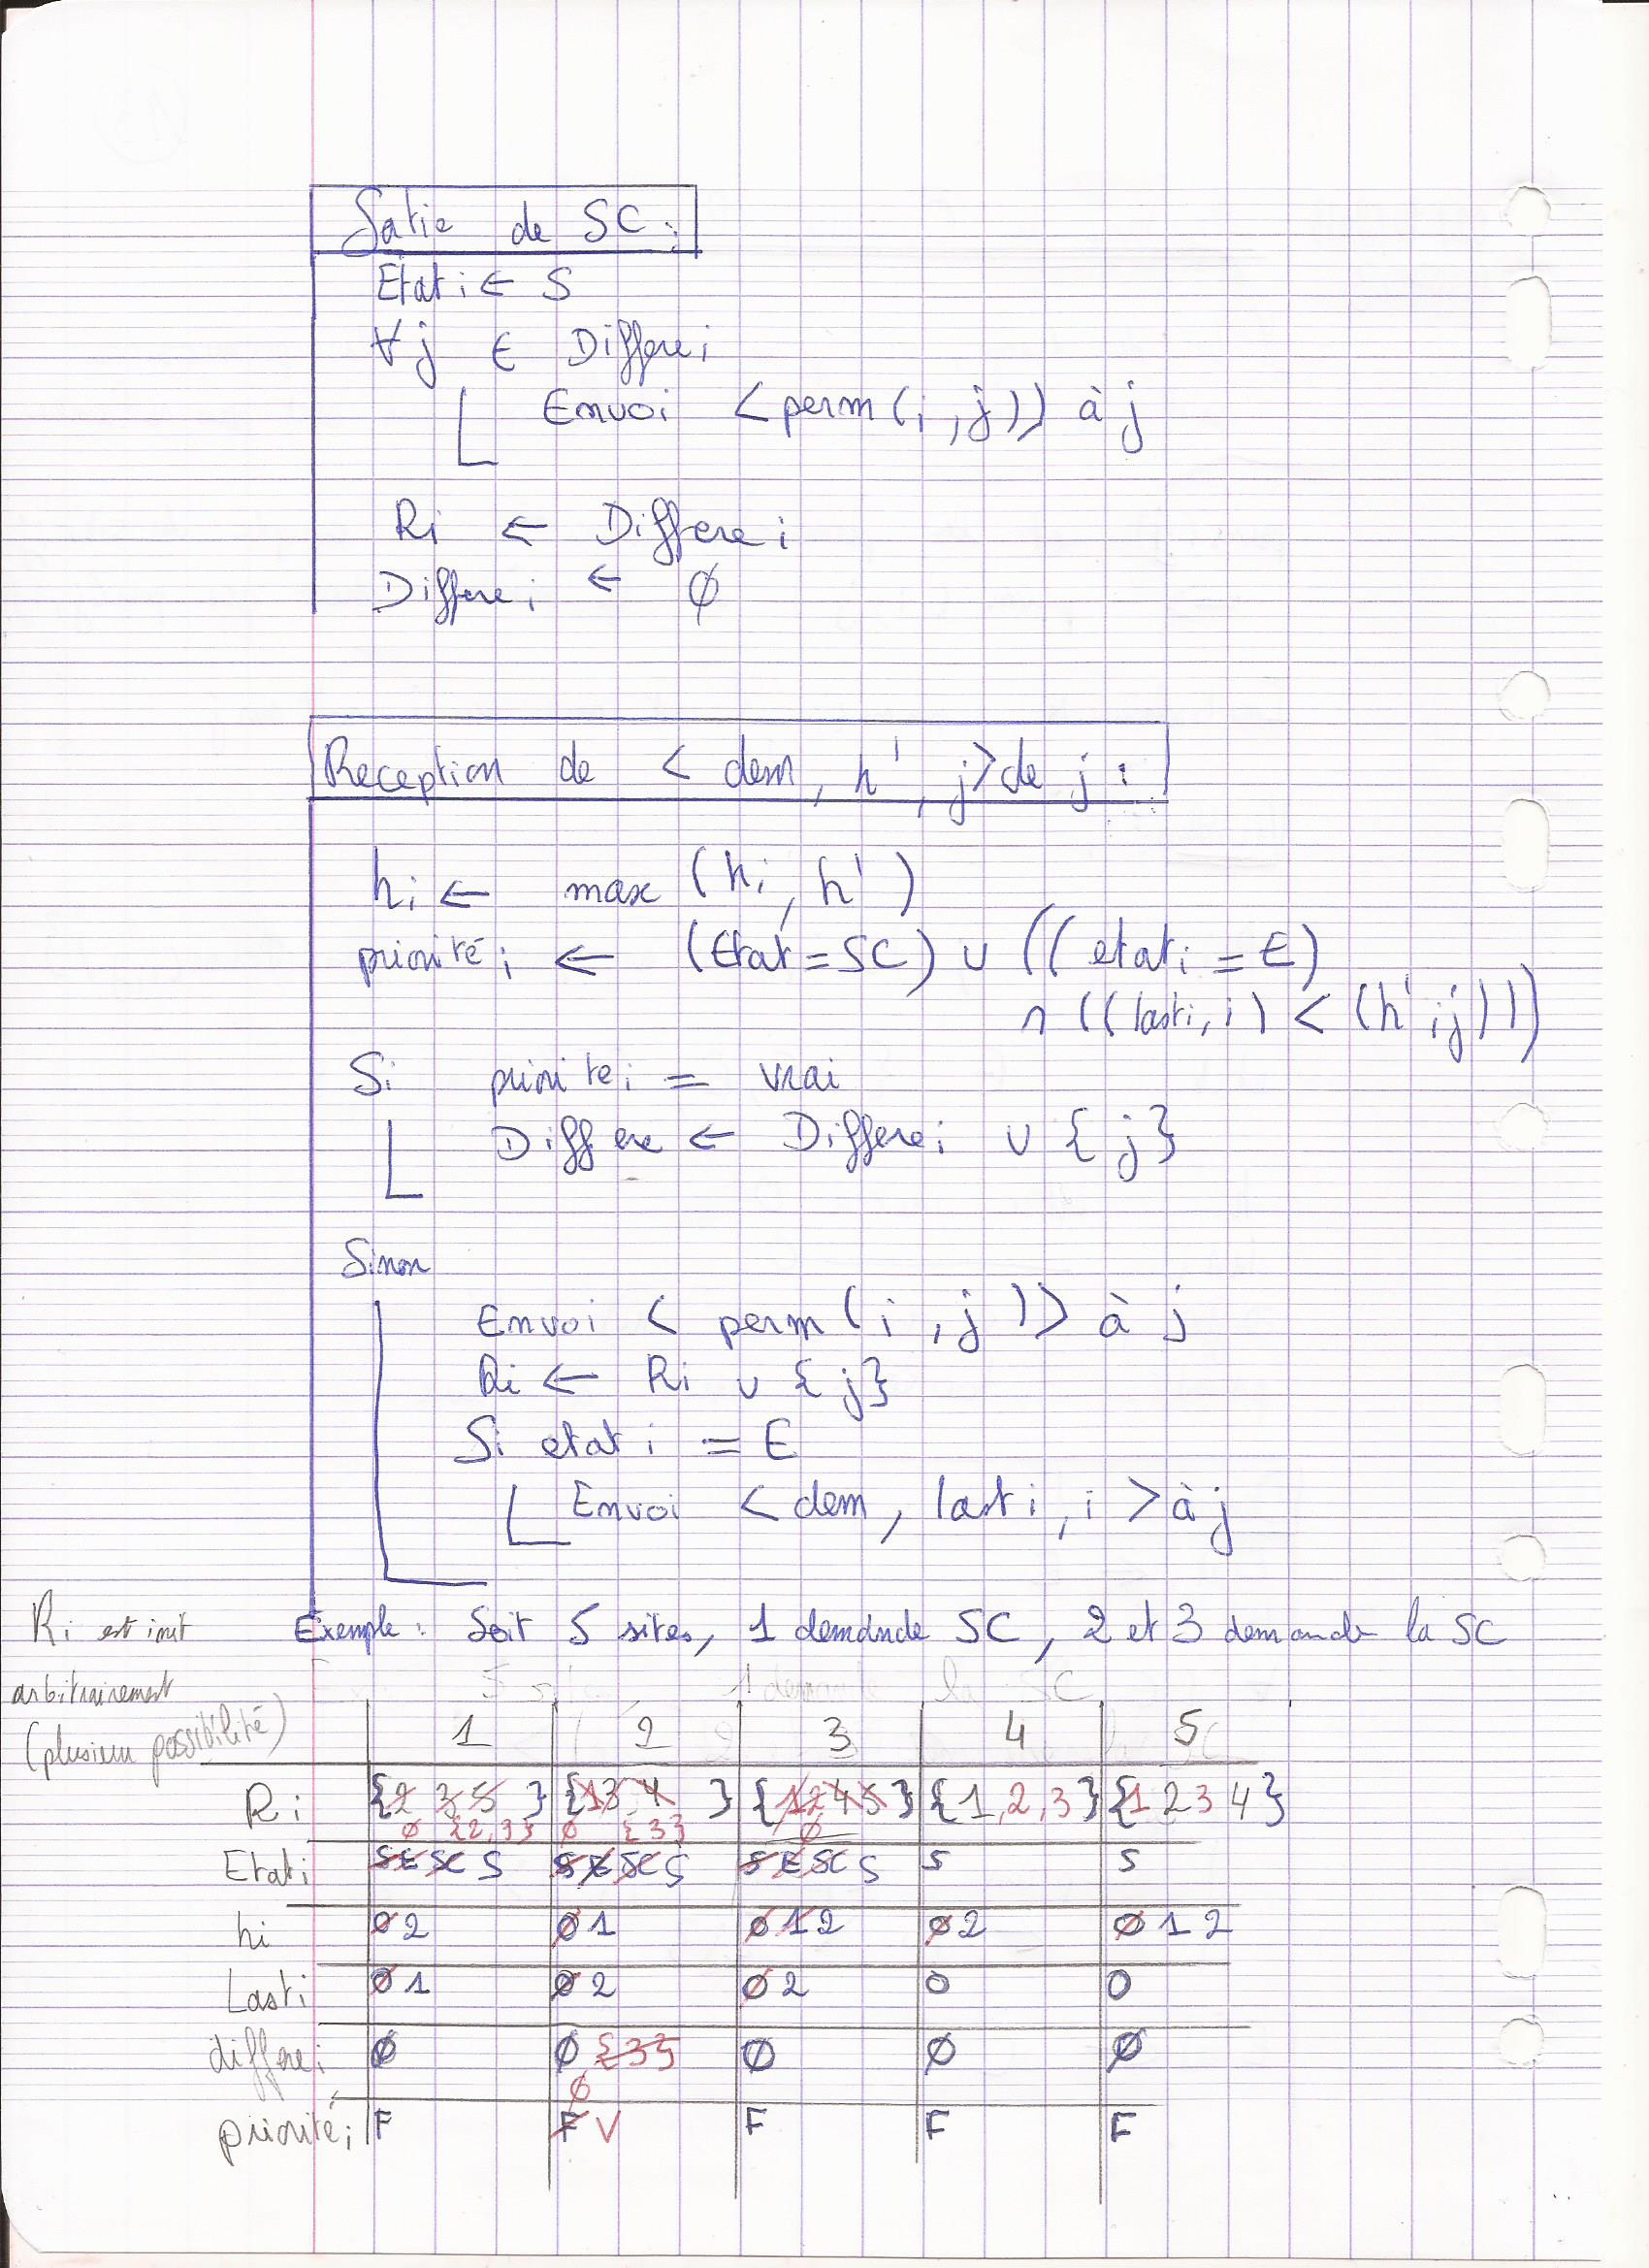 Satie de SC :
Etat i ← S
∀ j ∈ Differe i
Envoi < perm ( i , j ) ) à j
Ri ← Differe i
Differe i ← ∅
Reception de < dem , h' , j > de j :
hi ← max ( hi , h' )
priorité i ← (Etat = SC) ∪ ( ( etat i = E )
∩ ( ( lasti , i ) < ( h' , j ) ) )
Si priorite i = vrai
Differe ← Differe i ∪ { j }
Sinon
Envoi < perm ( i , j ) > à j
Ri ← Ri ∪ { j }
Si etat i = E
Envoi < dem , last i , i > à j
Ri est init
arbitrairement
(plusieu possibilité)
Exemple : Soit 5 sites, 1 demande SC , 2 et 3 demande la SC
1 2 3 4 5
Ri {2 3 5 } {1 3 4 } {1 2 4 5 } {1,2,3} {1 2 3 4 }
∅ {2,3} ∅ {3} ∅
Etat i S E SC S S E SC S S E SC S S S
hi 0 2 0 1 0 1 2 0 2 0 1 2
Last i 0 1 0 2 0 2 0 0
differe i ∅ ∅ {3} ∅ ∅ ∅
∅
priorité i F F V F F F